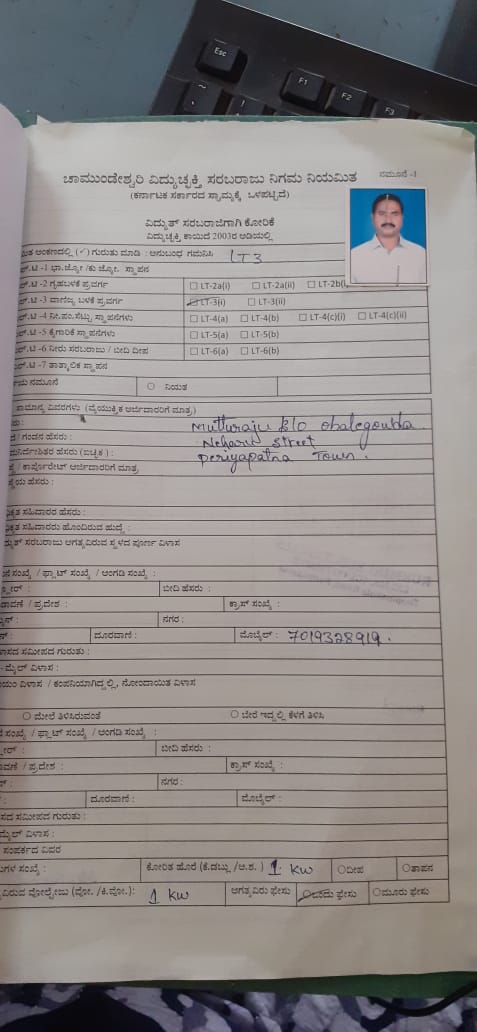 Esc
F1
F2
F3
~
!
ನಮೂನೆ -1
ಚಾಮುಂಡೇಶ್ವರಿ ವಿದ್ಯುಚ್ಛಕ್ತಿ ಸರಬರಾಜು ನಿಗಮ ನಿಯಮಿತ
(ಕರ್ನಾಟಕ ಸರ್ಕಾರದ ಸ್ವಾಮ್ಯಕ್ಕೆ ಒಳಪಟ್ಟಿದೆ)
ವಿದ್ಯುತ್ ಸರಬರಾಜಿಗಾಗಿ ಕೋರಿಕೆ
ವಿದ್ಯುಚ್ಛಕ್ತಿ ಕಾಯಿದೆ 2003ರ ಅಡಿಯಲ್ಲಿ
ಅಂಕಣದಲ್ಲಿ (✓) ಗುರುತು ಮಾಡಿ : ಅನುಬಂಧ ಗಮನಿಸಿ LT3
.ಟಿ -1 ಭಾ.ಜ್ಯೋ /ಕು ಜ್ಯೋ. ಸ್ಥಾಪನ
.ಟಿ -2 ಗೃಹಬಳಕೆ ಪ್ರವರ್ಗ ☐ LT-2a(i) ☐ LT-2a(ii) ☐ LT-2b(i
.ಟಿ -3 ವಾಣಿಜ್ಯ ಬಳಕೆ ಪ್ರವರ್ಗ ☑ LT-3(i) ☐ LT-3(ii)
.ಟಿ -4 ನೀ.ಪಂ.ಸೆಟ್ಟು ಸ್ಥಾಪನೆಗಳು ☐ LT-4(a) ☐ LT-4(b) ☐ LT-4(c)(i) ☐ LT-4(c)(ii)
.ಟಿ -5 ಕೈಗಾರಿಕೆ ಸ್ಥಾಪನೆಗಳು ☐ LT-5(a) ☐ LT-5(b)
.ಟಿ -6 ನೀರು ಸರಬರಾಜು / ಬೀದಿ ದೀಪ ☐ LT-6(a) ☐ LT-6(b)
.ಟಿ -7 ತಾತ್ಕಾಲಿಕ ಸ್ಥಾಪನ
ನಮೂನೆ ○ ನಿಯತ
ಸಾಮಾನ್ಯ ವಿವರಗಳು (ವೈಯುಕ್ತಿಕ ಅರ್ಜಿದಾರರಿಗೆ ಮಾತ್ರ)
Mutturaju S/o obalegowda
/ ಗಂಡನ ಹೆಸರು : Neharu Street
ಹೆಸರು (ಐಚ್ಛಿಕ) : periyapatna Town.
/ ಕಾರ್ಪೊರೇಟ್ ಅರ್ಜಿದಾರರಿಗೆ ಮಾತ್ರ
ಹೆಸರು :
ಸಹಿದಾರರ ಹೆಸರು :
ಸಹಿದಾರರು ಹೊಂದಿರುವ ಹುದ್ದೆ :
ಸರಬರಾಜು ಅಗತ್ಯವಿರುವ ಸ್ಥಳದ ಪೂರ್ಣ ವಿಳಾಸ
ಸಂಖ್ಯೆ / ಫ್ಲಾಟ್ ಸಂಖ್ಯೆ / ಅಂಗಡಿ ಸಂಖ್ಯೆ :
ಬೀದಿ ಹೆಸರು :
/ ಪ್ರದೇಶ : ಕ್ರಾಸ್ ಸಂಖ್ಯೆ :
ನಗರ :
ದೂರವಾಣಿ : ಮೊಬೈಲ್ : 7019328919.
ಸಮೀಪದ ಗುರುತು :
ವಿಳಾಸ :
ವಿಳಾಸ / ಕಂಪನಿಯಾಗಿದ್ದಲ್ಲಿ, ನೋಂದಾಯಿತ ವಿಳಾಸ
○ ಮೇಲೆ ತಿಳಿಸಿರುವಂತೆ ○ ಬೇರೆ ಇದ್ದಲ್ಲಿ ಕೆಳಗೆ ತಿಳಿಸಿ
ಸಂಖ್ಯೆ / ಫ್ಲಾಟ್ ಸಂಖ್ಯೆ / ಅಂಗಡಿ ಸಂಖ್ಯೆ :
ಬೀದಿ ಹೆಸರು :
/ ಪ್ರದೇಶ : ಕ್ರಾಸ್ ಸಂಖ್ಯೆ :
ನಗರ :
ದೂರವಾಣಿ : ಮೊಬೈಲ್ :
ಸಮೀಪದ ಗುರುತು :
ವಿಳಾಸ :
ಸಂಪರ್ಕದ ವಿವರ
ಸಂಖ್ಯೆ : ಕೋರಿತ ಹೊರೆ (ಕಿ.ಡಬ್ಲ್ಯು /ಅ.ಶ. ) 1 kw ○ದೀಪ ○ತಾಪನ
ವೋಲ್ಟೇಜು (ವೋ. /ಕಿ.ವೋ.): 1 kw ಅಗತ್ಯವಿರು ಫೇಸು ○ಒಂದು ಫೇಸು ○ಮೂರು ಫೇಸು